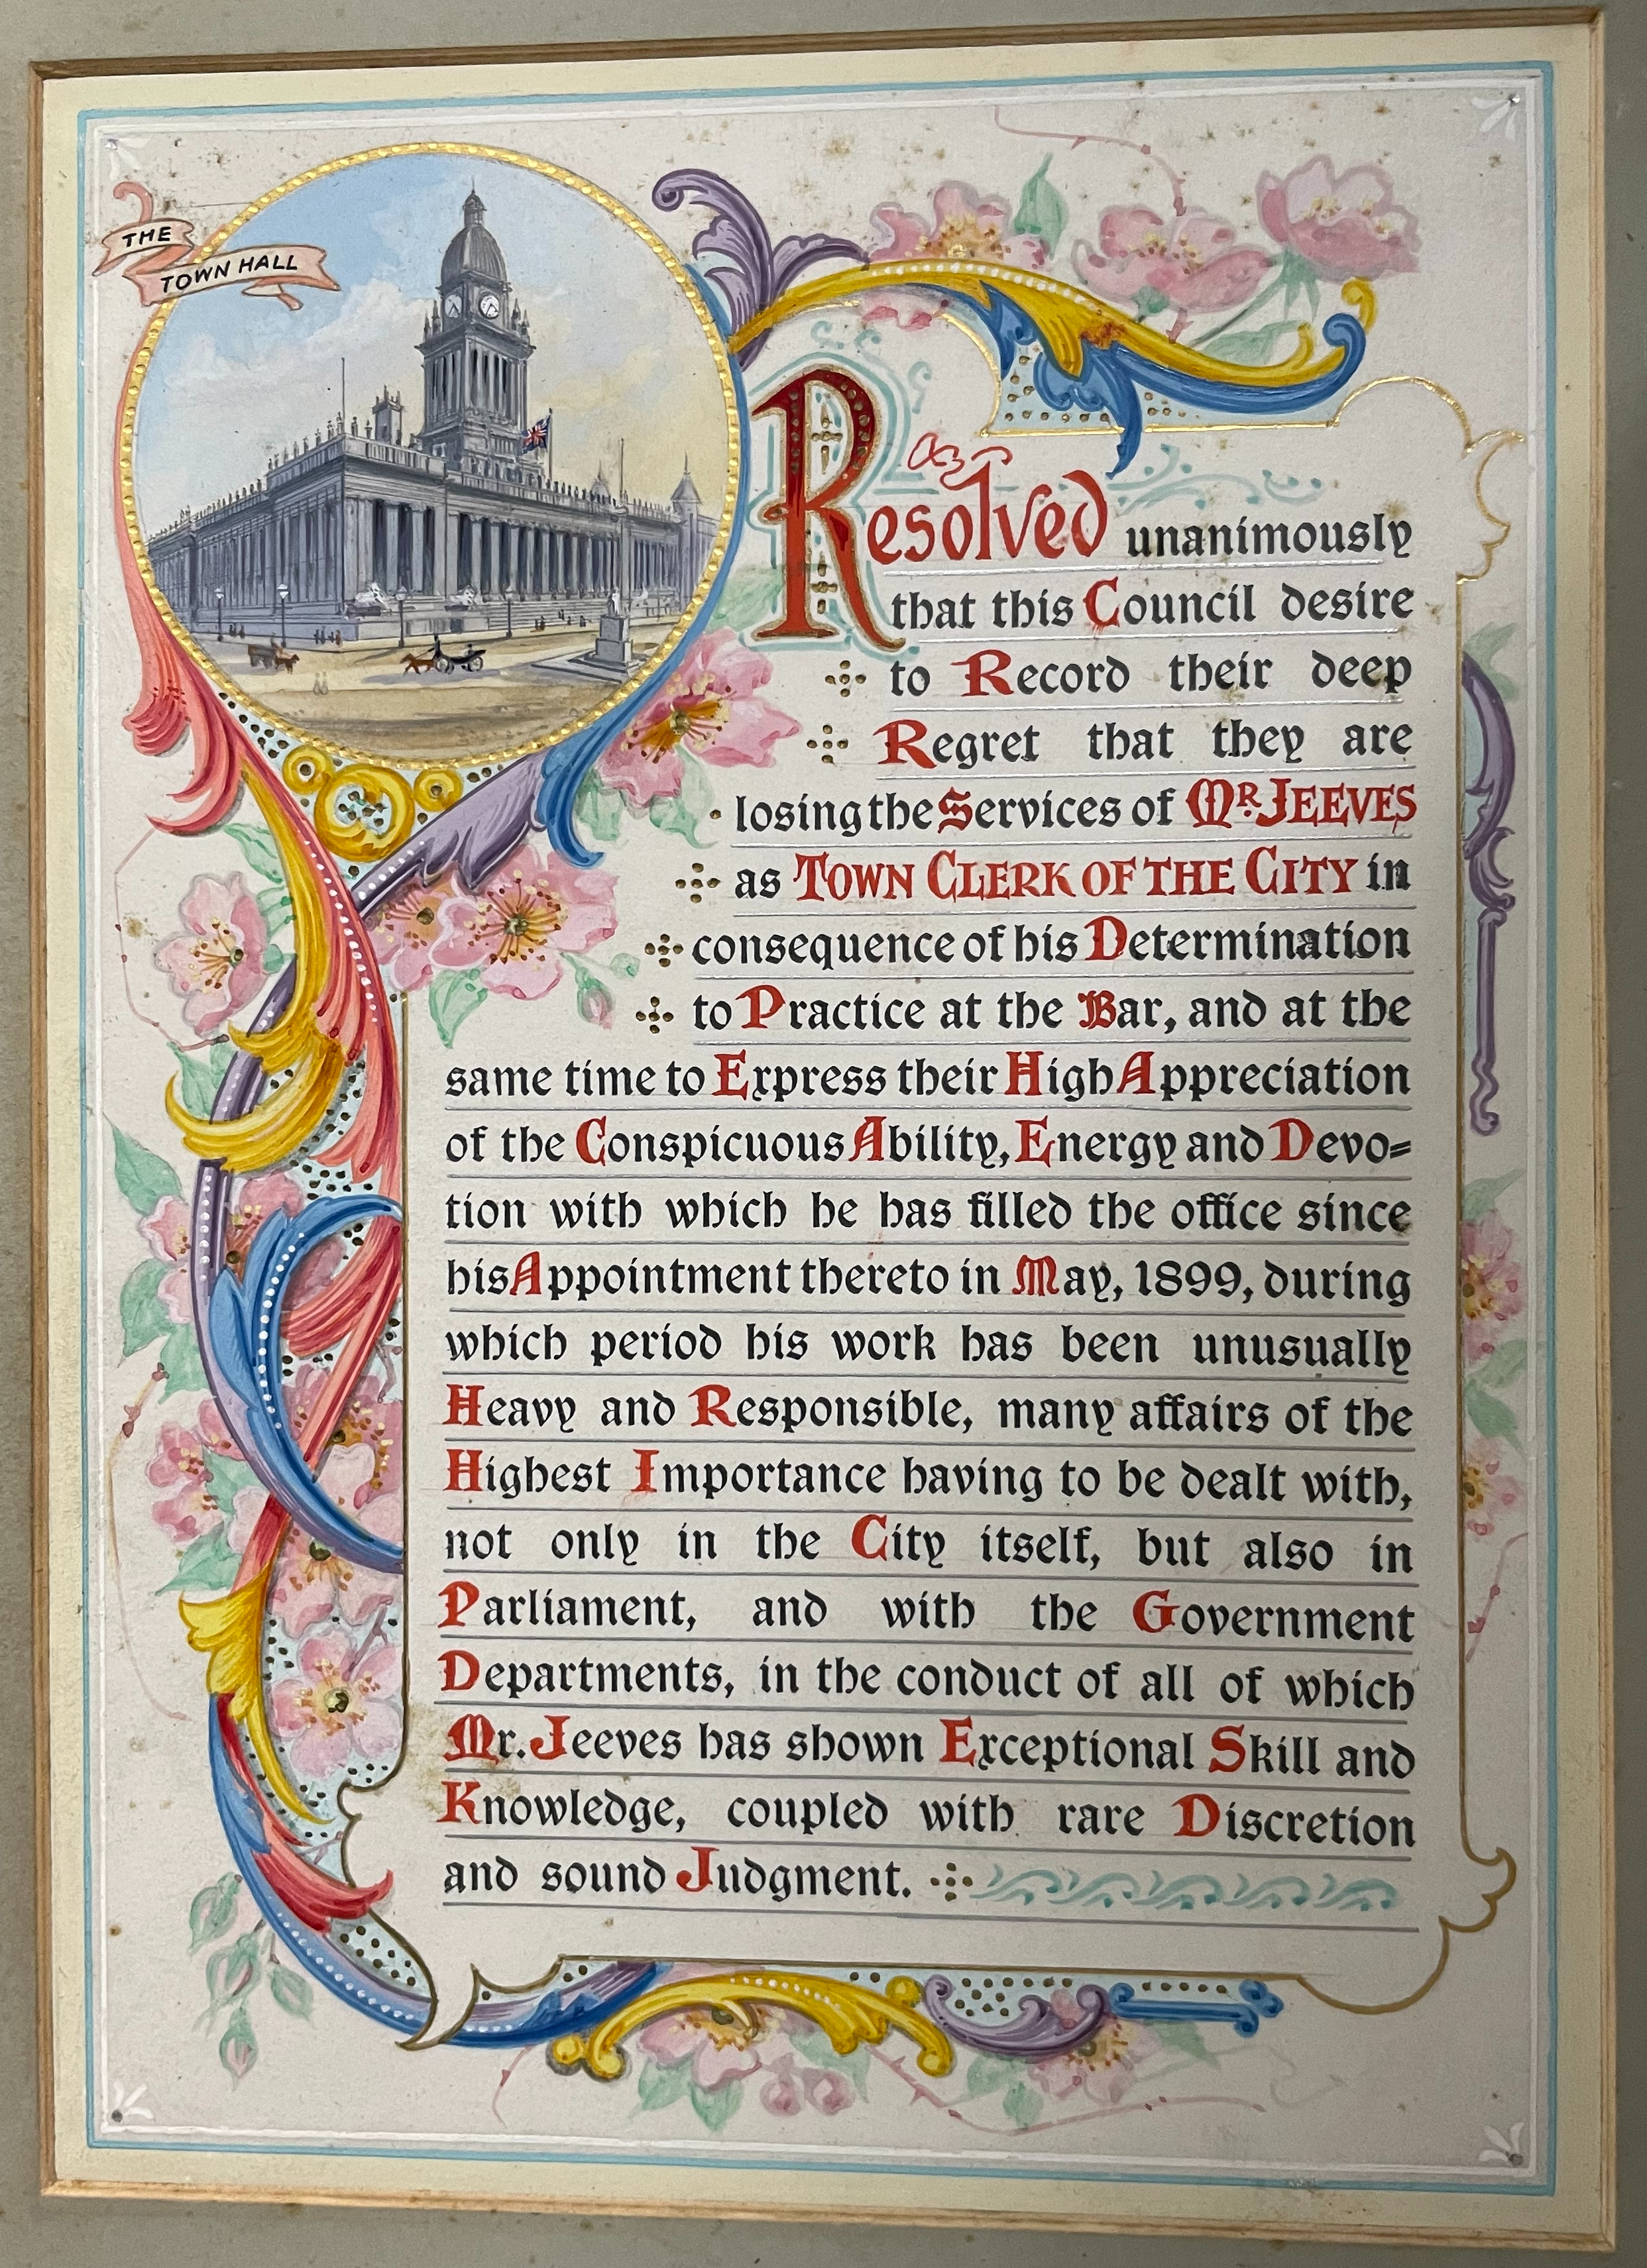 THE
TOWN HALL
Resolved unanimously
that this Council desire
to Record their deep
Regret that they are
losing the Services of MR. JEEVES
as TOWN CLERK OF THE CITY in
consequence of his Determination
to Practice at the Bar, and at the
same time to Express their High Appreciation
of the Conspicuous Ability, Energy and Devo=
tion with which he has filled the office since
his Appointment thereto in May, 1899, during
which period his work has been unusually
Heavy and Responsible, many affairs of the
Highest Importance having to be dealt with,
not only in the City itself, but also in
Parliament, and with the Government
Departments, in the conduct of all of which
Mr. Jeeves has shown Exceptional Skill and
Knowledge, coupled with rare Discretion
and sound Judgment.